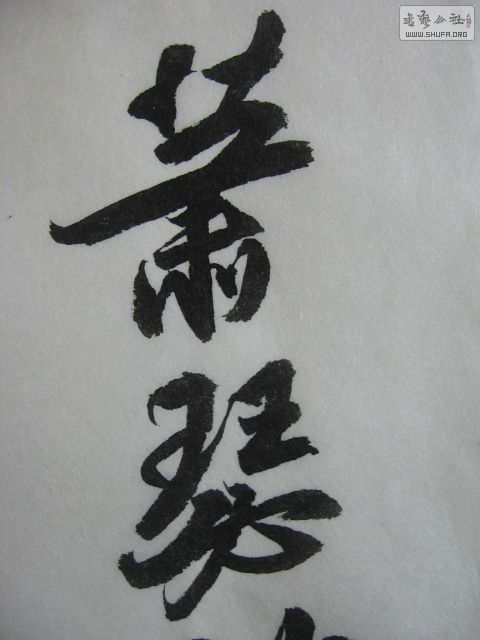 蕭瑟
書藝公社
WWW.SHUFA.ORG